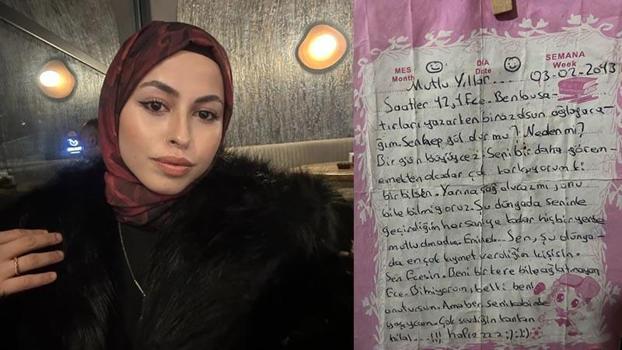 MES
Month
DIA
Date
SEMANA
Week
Mutlu Yıllar.... 03-02-2013
Saatler 12,1 Ece. Ben bu sa-
tırları yazarken biraz dsun ağlayaca-
ğım. Sen hep gül dur mu? Neden mi?
Bir gün
Seni bir daha görem-
emekten o kadar çok korkuyorum ki
bir bilsen. Yarına
bile bilmiyoruz. Şu dünyada seninle
geçirdiğim her saniye kadar hiçbir yerde
mutlu olmadım. Eminim... Sen, şu dünya-
da en çok kıymet verdiğin kişisin.
Sen Ecesin. Beni bir kere bile ağlatmayan
Ece. Bilmiyorum, belki beni
unutursun. Ama ben seni kalbimde
Çok sevdiğin kankan
Hilal....!!!